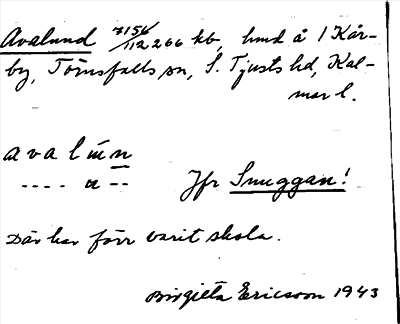 Avalund 7156/112266 kb, hmd å 1 Kår-
by, Törnsfalls sn, S. Tjusts hd, Kal-
mar l.
avalún
---- u -- Jfr Snuggan!
Där har förr varit skola.
Birgitta Ericsson 1943